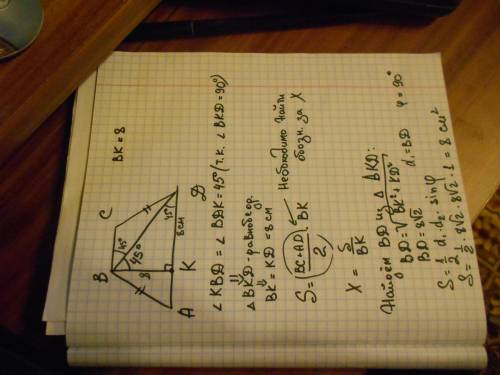 BK = 8
B
C
45°
45°
8
45°
8 см
A
K
D
∠ KBD = ∠ BDK = 45° (т.к. ∠ BKD = 90°)
⇓
△ BKD - равнобедр.
⇓
BK = KD = 8 см
S = (BC + AD)/2 · BK
Необходимо найти
обозн. за X
X = S/BK
Найдём BD из △ BKD:
BD = √BK² + KD²
BD = 8√2
d₁ = BD
φ = 90°
S = 1/2 d₁ d₂ · sin φ
S = 1/2 · 8√2 · 8√2 · 1 = 8 см²